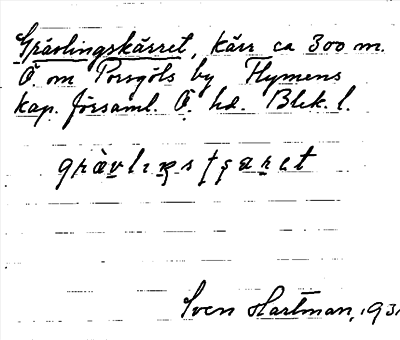 Grävlingskärret, kärr ca 300 m.
Ö. om Porsgöls by Flymens
kap. församl. Ö. hd. Blek. l.
Sven Hartman, 193